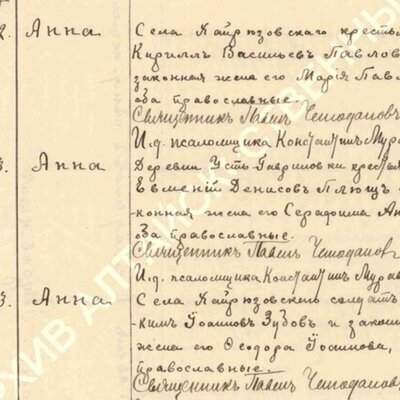 2. Анна Села Кайрюзовскаго крестья
Кириллъ Васильевъ Павлов
законная жена его Марія Павл
оба православные.
Священникъ Павелъ Чемодановъ
И.д. псаломщика Константинъ Мура
3. Анна Деревни Усть Гавриловки кресть
Евменій Денисовъ Плющ
конная жена его Серафима Ан
оба православные.
Священникъ Павелъ Чемодановъ
И.д. псаломщика Константинъ Мурав
3. Анна Села Кайрюзовскаго солдатъ
кимъ Іоанновъ Зубовъ и закон
жена его Ѳеодора Іоаннова,
православные.
Священникъ Павелъ Чемоданов
АРХИВ АЛТАЙСК